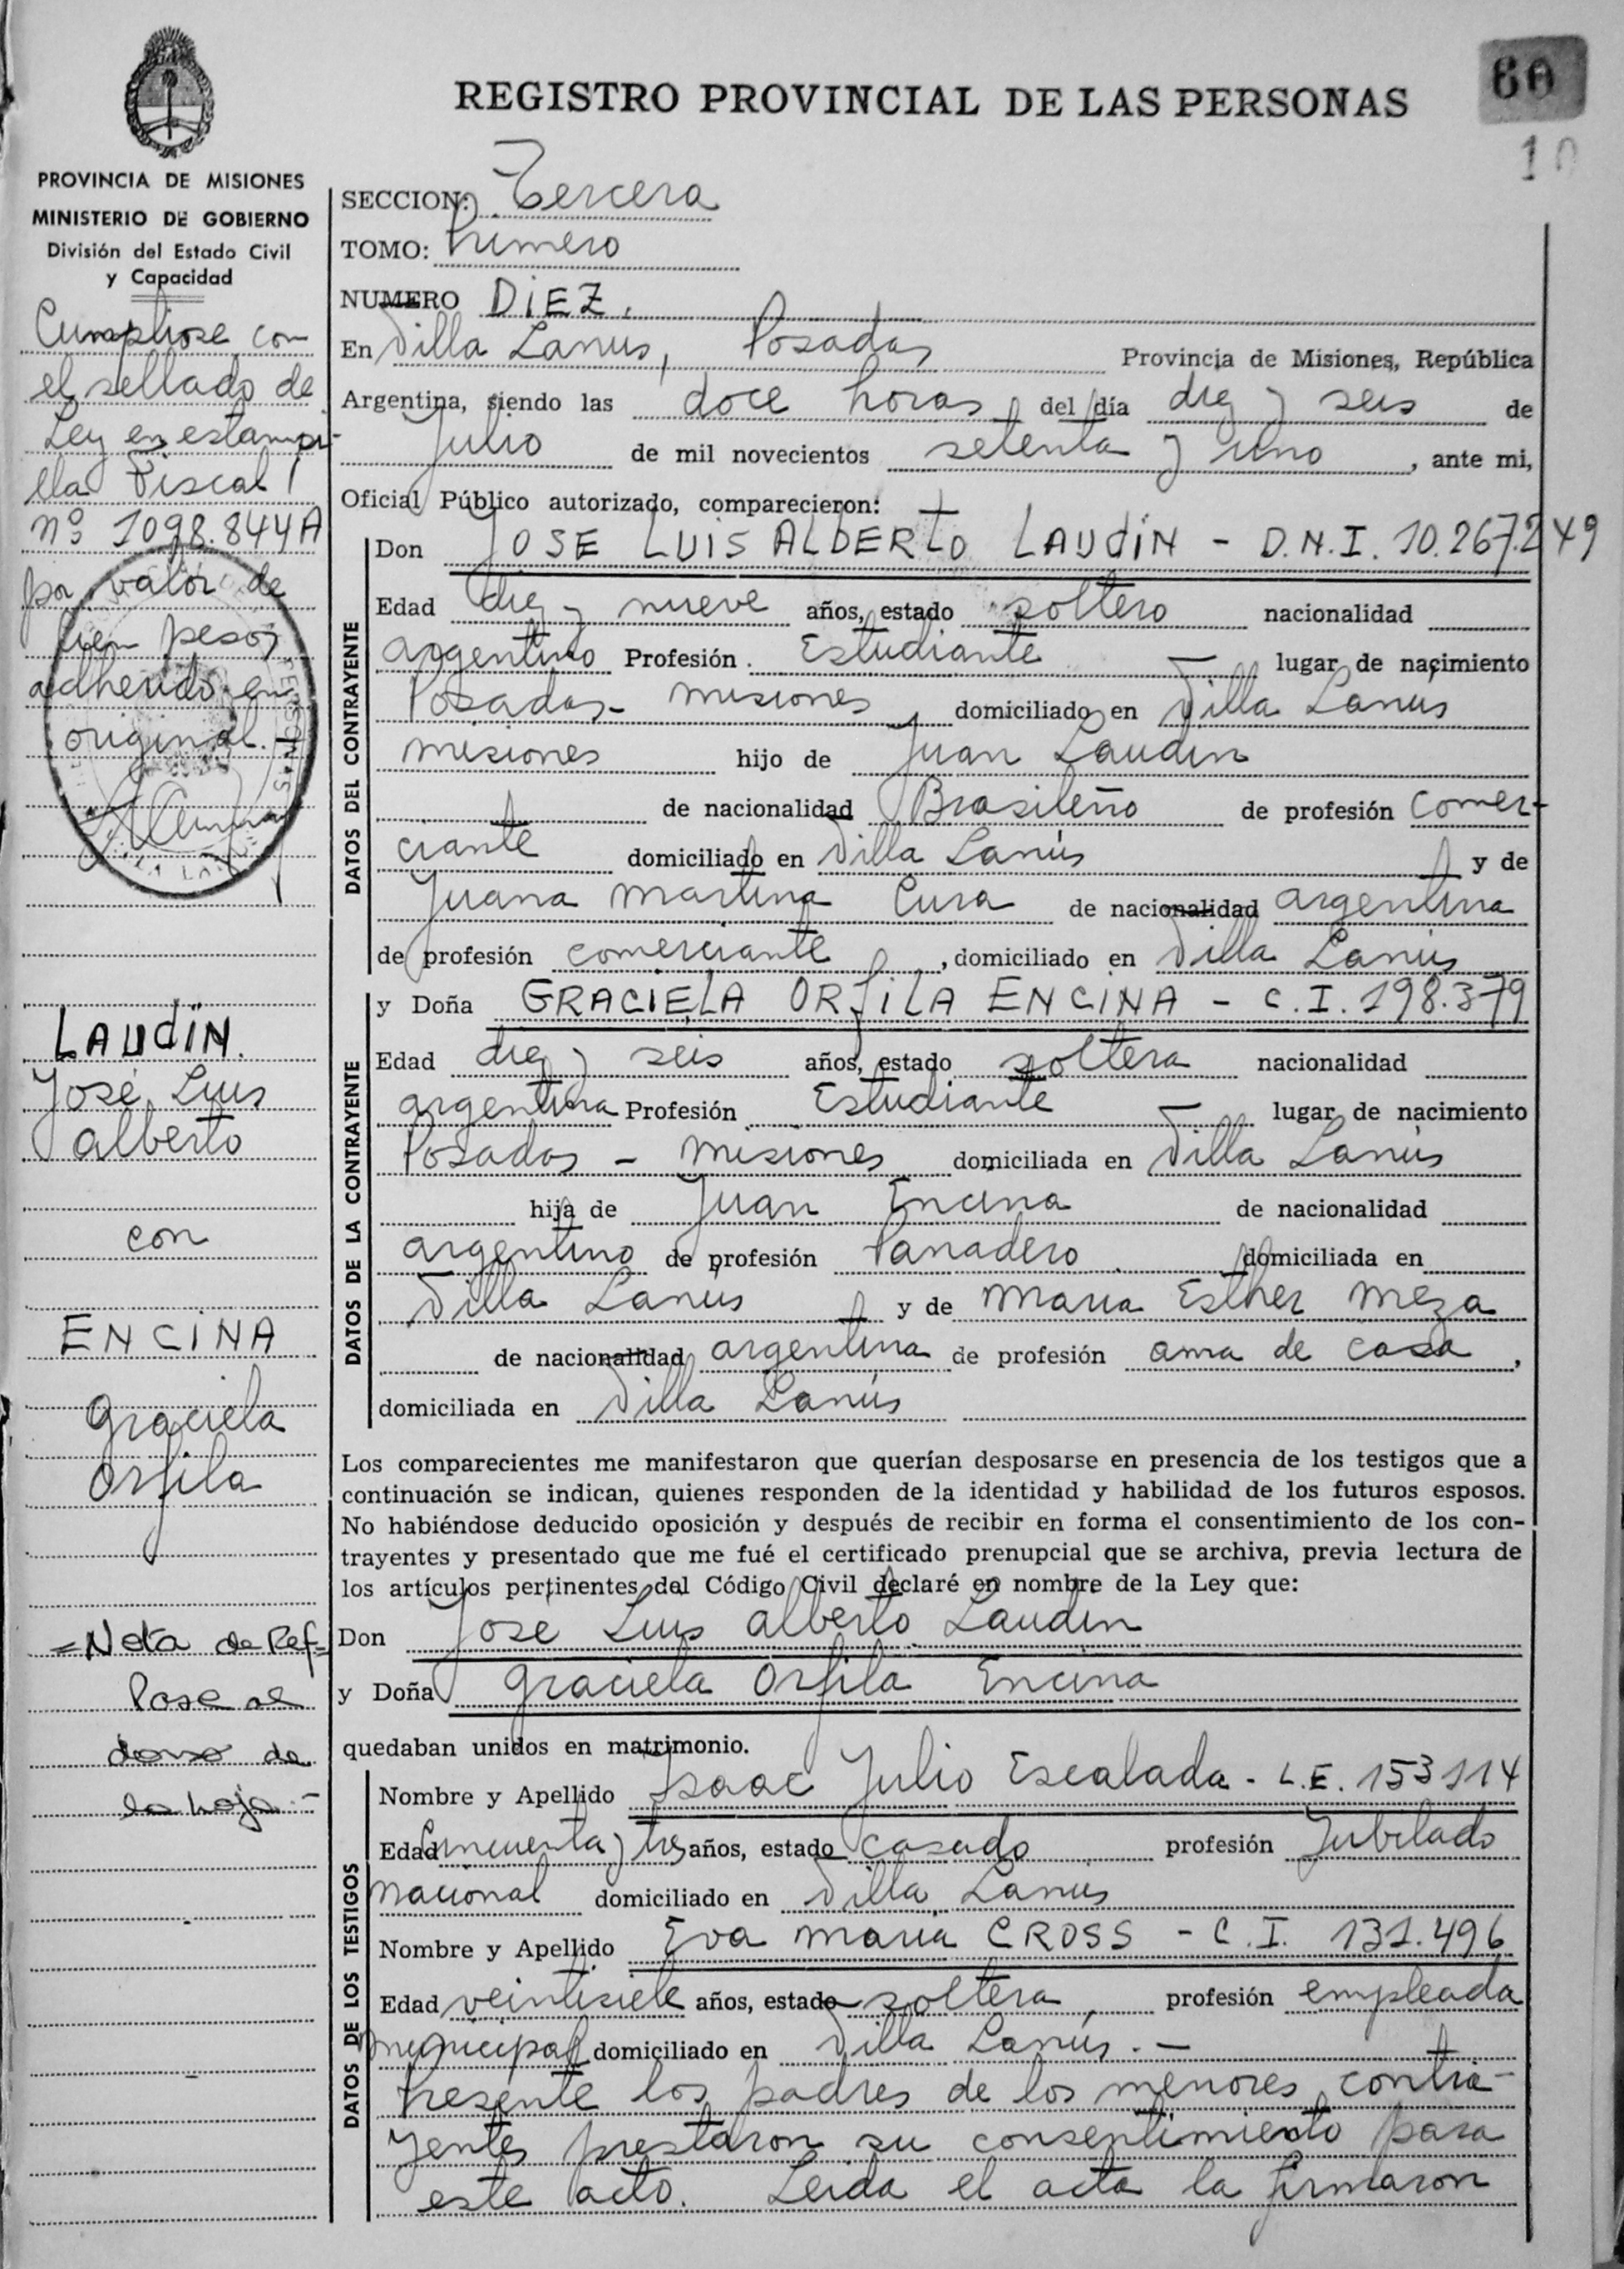 REGISTRO PROVINCIAL DE LAS PERSONAS
60
10
PROVINCIA DE MISIONES
MINISTERIO DE GOBIERNO
División del Estado Civil
y Capacidad
Cumpliose con
el sellado de
Ley en estampi-
lla Fiscal
nº 1098.844A
por valor de
cien pesos
adherido en
original.
LAUDiN.
José Luis
Alberto
con
ENCiNA
Graciela
Orfila
=Nota de Ref=
Pase al
dorso de
la hoja.-
SECCION: Tercera
TOMO: Primero
NUMERO DiEZ.
En Villa Lanus, Posadas Provincia de Misiones, República
Argentina, siendo las doce horas del día diez y seis de
Julio de mil novecientos setenta y uno, ante mi,
Oficial Público autorizado, comparecieron:
DATOS DEL CONTRAYENTE
Don JOSE LUIS ALBERTO LAUDiN - D.N.I. 10.267.249
Edad diez y nueve años, estado soltero nacionalidad
argentino Profesión. Estudiante lugar de nacimiento
Posadas - misiones domiciliado en Villa Lanús
misiones hijo de Juan Laudin
de nacionalidad Brasileño de profesión comer-
ciante domiciliado en Villa Lanús y de
Juana Martina Cura de nacionalidad argentina
de profesión comerciante, domiciliado en Villa Lanús
DATOS DE LA CONTRAYENTE
y Doña GRACIELA ORFiLA ENCiNA - C.I. 198.379
Edad diez y seis años, estado soltera nacionalidad
argentina Profesión Estudiante lugar de nacimiento
Posadas - misiones domiciliada en Villa Lanús
hija de Juan Encina de nacionalidad
argentino de profesión Panadero domiciliada en
Villa Lanus y de Maria Esther Meza
de nacionalidad argentina de profesión ama de casa,
domiciliada en Villa Lanús
Los comparecientes me manifestaron que querían desposarse en presencia de los testigos que a
continuación se indican, quienes responden de la identidad y habilidad de los futuros esposos.
No habiéndose deducido oposición y después de recibir en forma el consentimiento de los con-
trayentes y presentado que me fué el certificado prenupcial que se archiva, previa lectura de
los artículos pertinentes del Código Civil declaré en nombre de la Ley que:
Don José Luis Alberto Laudin
y Doña Graciela Orfila Encina
quedaban unidos en matrimonio.
DATOS DE LOS TESTIGOS
Nombre y Apellido Isaac Julio Escalada - L.E. 153114
Edad Cincuenta y tres años, estado casado profesión Jubilado
nacional domiciliado en Villa Lanus
Nombre y Apellido Eva Maria CROSS - C.I. 131.496
Edad veintisiete años, estado soltera, profesión empleada
municipal domiciliado en Villa Lanús.-
Presente los padres de los menores contra-
yentes prestaron su consentimiento para
este acto. Leida el acta la firmaron